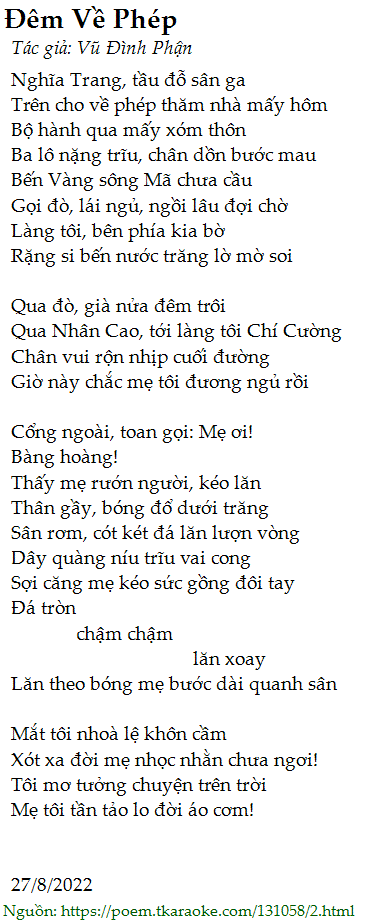 Đêm Về Phép
Tác giả: Vũ Đình Phận
Nghĩa Trang, tầu đỗ sân ga
Trên cho về phép thăm nhà mấy hôm
Bộ hành qua mấy xóm thôn
Ba lô nặng trĩu, chân dồn bước mau
Bến Vàng sông Mã chưa cầu
Gọi đò, lái ngủ, ngồi lâu đợi chờ
Làng tôi, bên phía kia bờ
Rặng si bến nước trăng lờ mờ soi
Qua đò, già nửa đêm trôi
Qua Nhân Cao, tới làng tôi Chí Cường
Chân vui rộn nhịp cuối đường
Giờ này chắc mẹ tôi đương ngủ rồi
Cổng ngoài, toan gọi: Mẹ ơi!
Bàng hoàng!
Thấy mẹ rướn người, kéo lăn
Thân gầy, bóng đổ dưới trăng
Sân rơm, cót két đá lăn lượn vòng
Dây quàng níu trĩu vai cong
Sợi căng mẹ kéo sức gồng đôi tay
Đá tròn
chậm chậm
lăn xoay
Lăn theo bóng mẹ bước dài quanh sân
Mắt tôi nhoà lệ khôn cầm
Xót xa đời mẹ nhọc nhằn chưa ngơi!
Tôi mơ tưởng chuyện trên trời
Mẹ tôi tần tảo lo đời áo cơm!
27/8/2022
Nguồn: https://poem.tkaraoke.com/131058/2.html